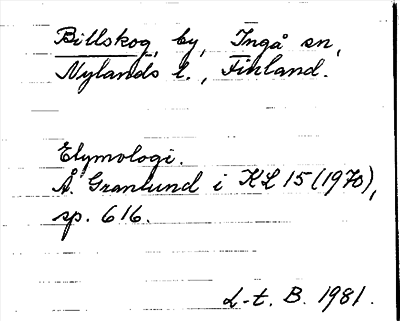 Billskog, by, Ingå sn,
Nylands l., Finland.
Etymologi.
Å. Granlund i KL 15 (1970),
sp. 616.
L-t. B. 1981.